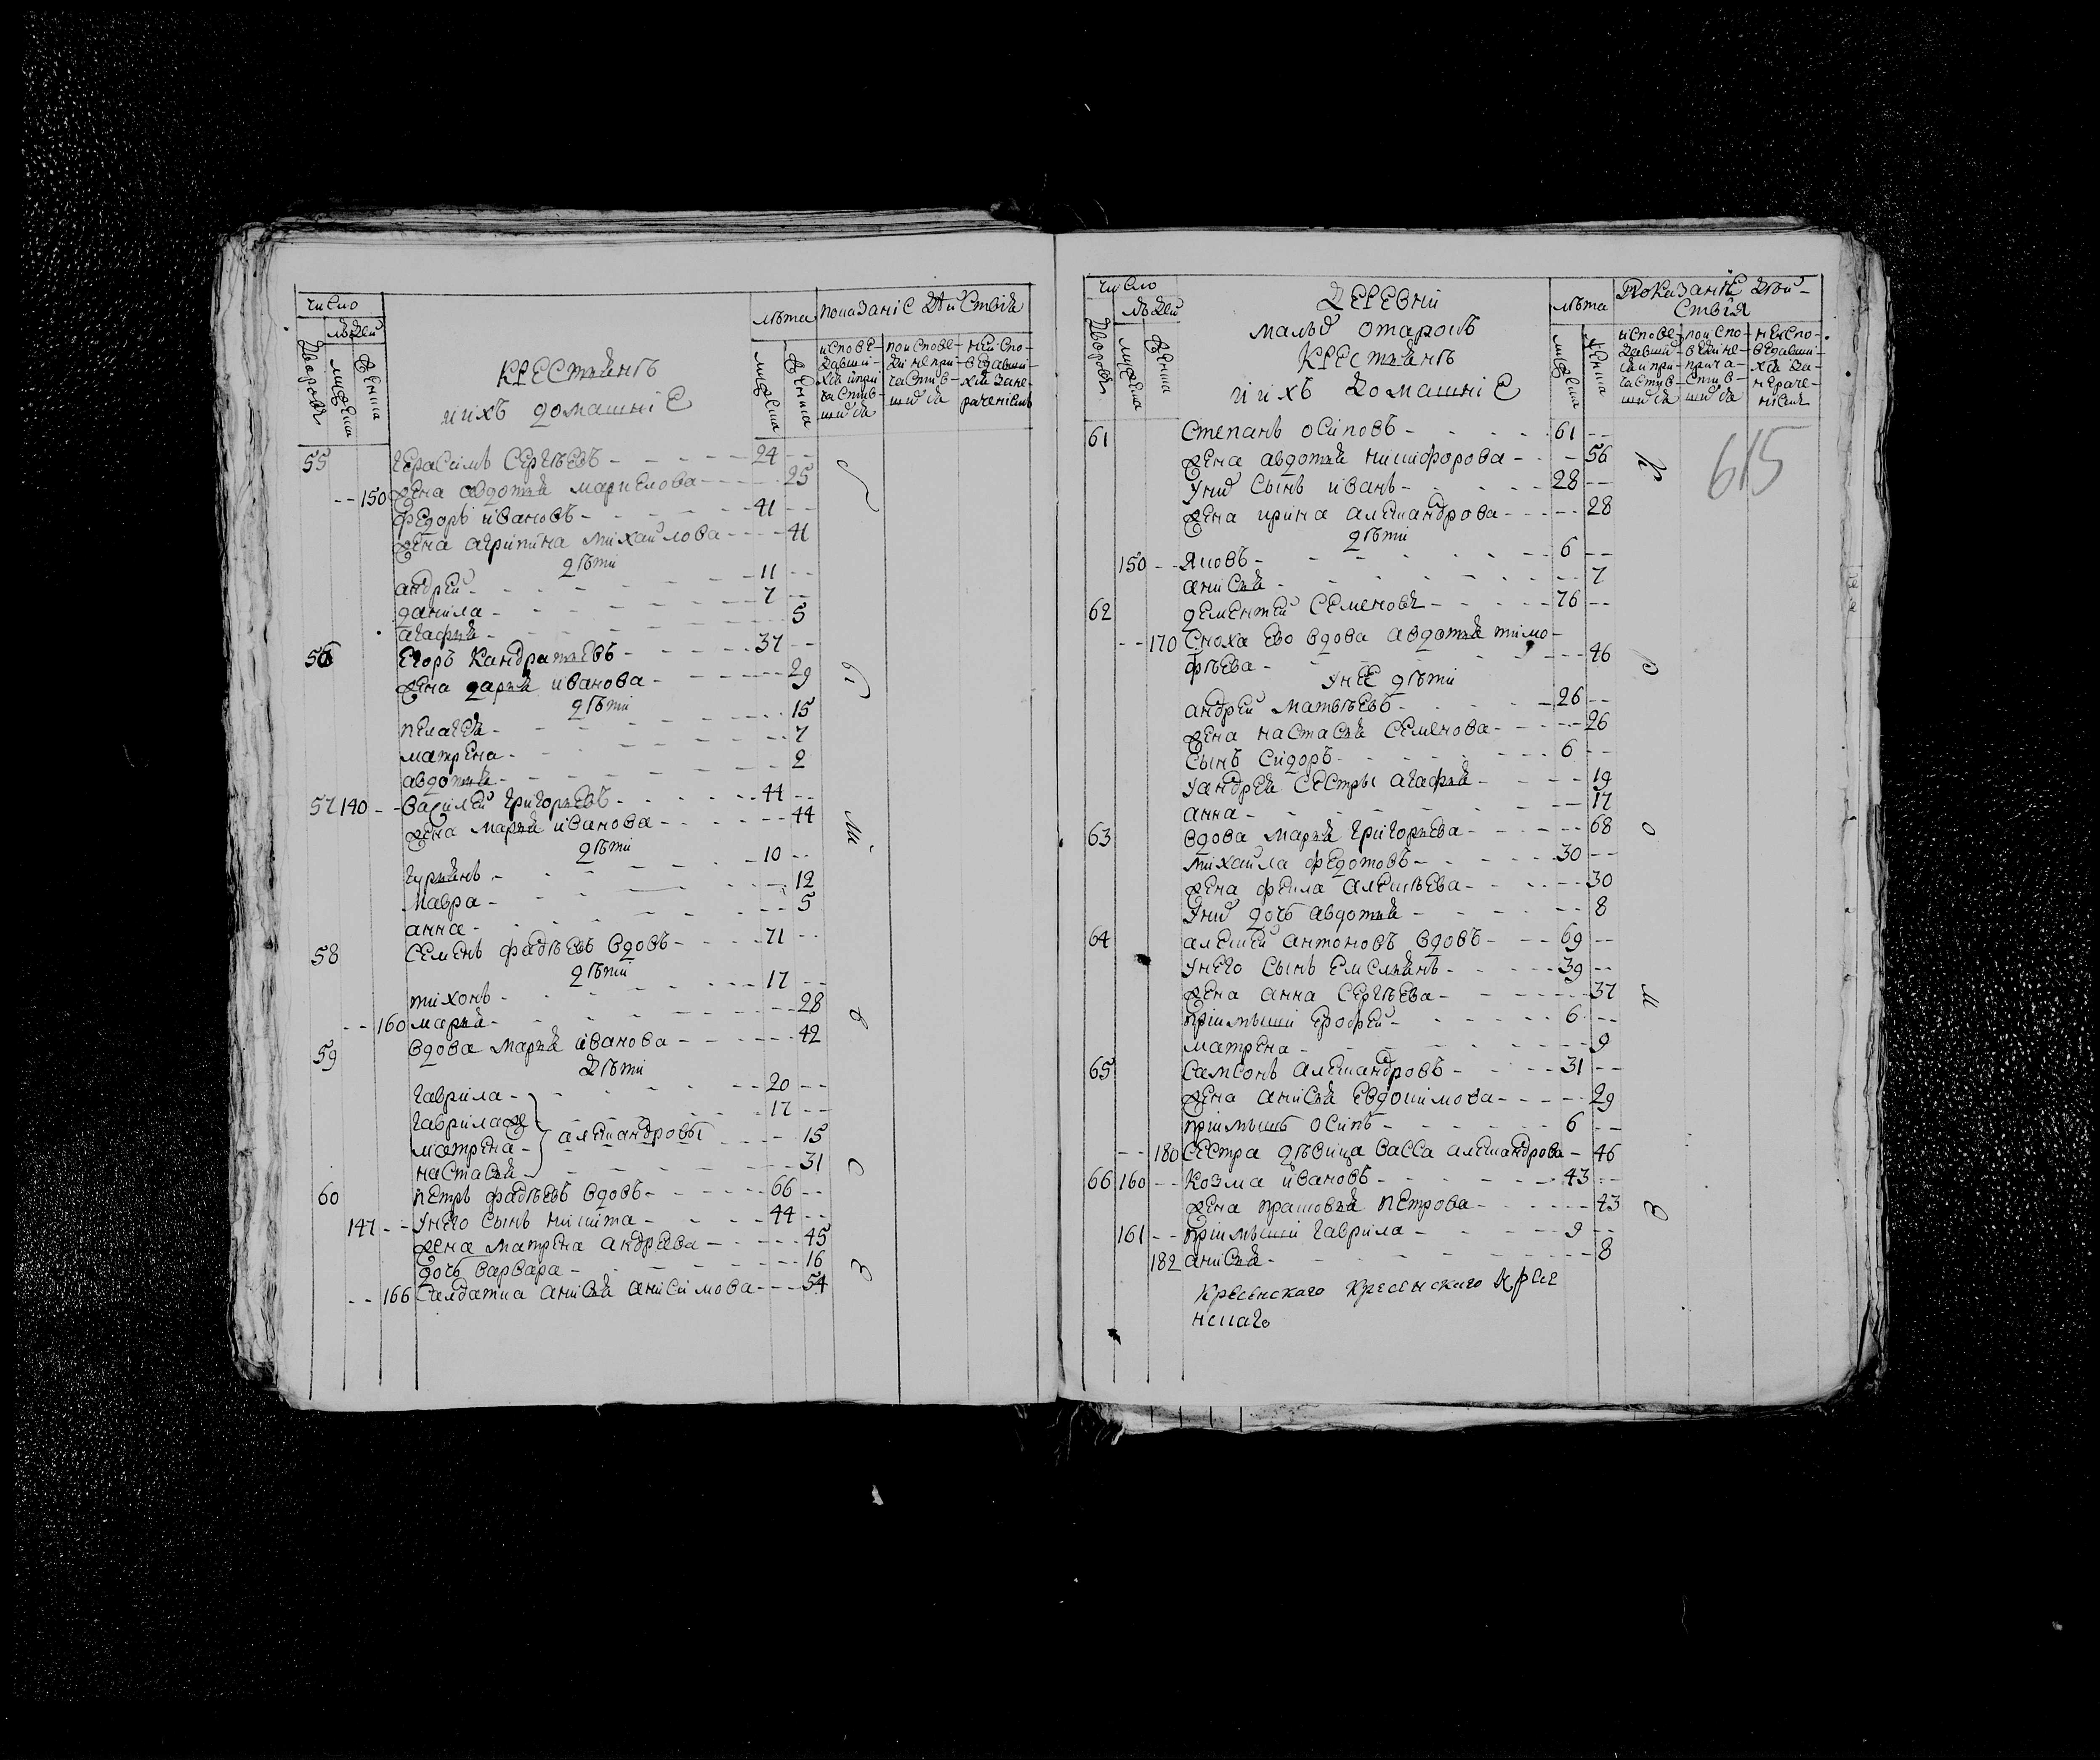 число
людей
дворовъ
мужеска
женска
крестьянъ
и ихъ домашніе
лѣта
мужеска
женска
показаніе дѣйствія
исповѣ-
давши-
хся и при
частив-
шихся
по исповѣ-
ди не при-
частив-
шихся
не испо-
вѣдавши-
хся за не-
раченіемъ
55 герасимъ сергѣевъ 24
150 жена авдотья маркелова 25
федоръ ивановъ 41
жена агрипина михайлова 41
дѣти
андрей 11
данила 7
агафья 5
56 егоръ кандратьевъ 37
жена дарья иванова 29
дѣти
пелагея 15
матрена 7
авдотья 2
57 140 василей григорьевъ 44
жена марья иванова 44
дѣти
гурьянъ 10
мавра 12
анна 5
58 семенъ фадѣевъ вдовъ 71
дѣти
тихонъ 17
160 марья 28
59 вдова марья иванова 42
дѣти
гаврила 20
гаврила же 17
матрена александровы 15
настасья 31
60 петръ фадѣевъ вдовъ 66
147 у него сынъ никита 44
жена матрена андрѣева 45
дочь варвара 16
166 салдатка анисья анисимова 54
число
людей
дворовъ
мужеска
женска
деревни
малыхъ отаровъ
крестьянъ
и ихъ домашніе
лѣта
мужеска
женска
показаніе дѣй-
ствія
исповѣ-
давши-
ся и при-
частив-
шихся
по испо-
вѣди не-
прича-
стив-
шихся
не испо-
вѣдавши-
хся за-
нераче-
ніемъ
615
61 степанъ осиповъ 61
жена авдотья никифорова 56
у них сынъ иванъ 28
жена ирина александрова 28
дѣти
150 яковъ 6
анисья 7
62 дементей семеновъ 76
170 сноха ево вдова авдотья тимо-
фѣева 46
у нее дѣти
андрей матвѣевъ 26
жена настасья семенова 26
сынъ сидоръ 6
у андрея сестры агафья 19
анна 17
63 вдова марья григорьева 68
михайла федотовъ 30
жена фекла алексѣева 30
у них дочь авдотья 8
64 алексей антоновъ вдовъ 69
у него сынъ емельянъ 39
жена анна сергѣева 37
пріимыши ерофей 6
матрена 9
65 самсонъ александровъ 31
жена анисья евдокимова 29
пріимышъ осипъ 6
180 сестра дѣвица васса александрова 46
66 160 козма ивановъ 43
жена прасковья петрова 43
161 пріимыши гаврила 9
182 анисья 8